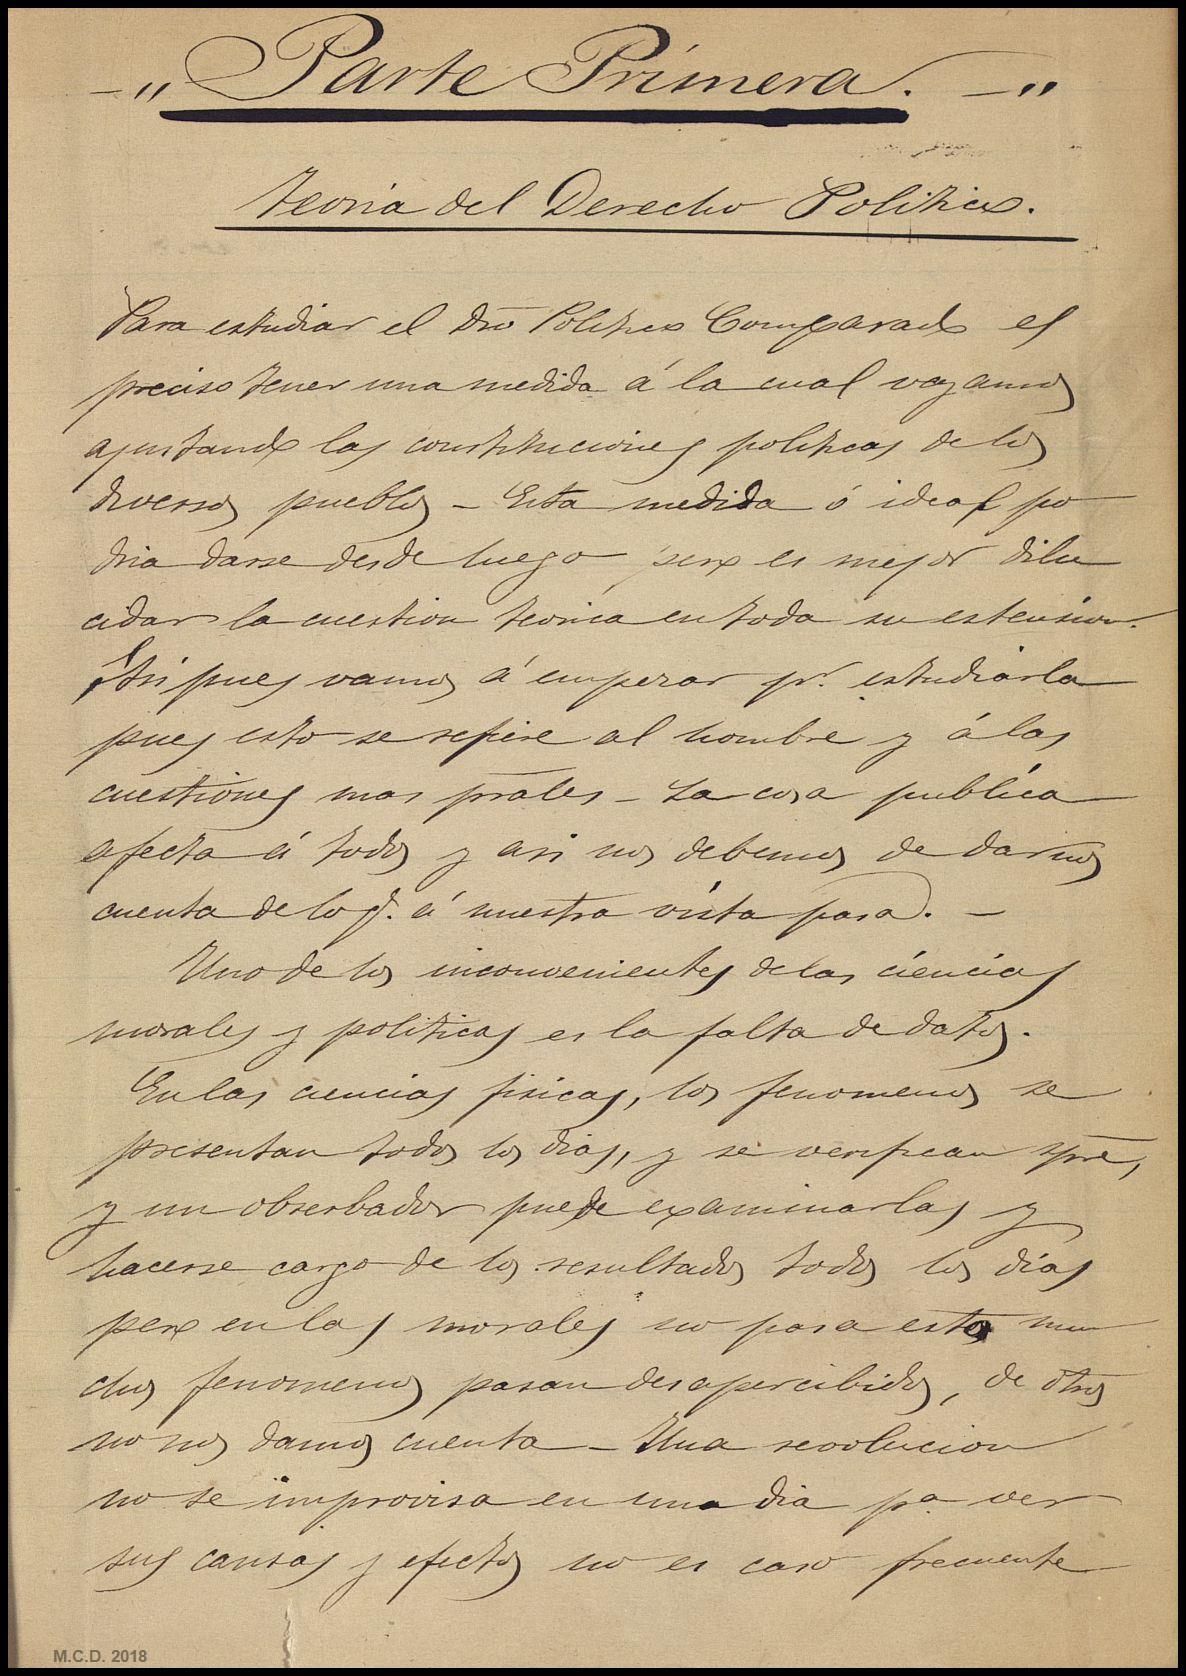 — „ Parte Primera. — „
Teoria del Derecho Politico.
Para estudiar el Dro Politico Comparado es
preciso tener una medida á la cual vayamos
ajustando las constituciones politicas de los
diversos pueblos – Esta medida ó ideal po
dria darse desde luego pero es mejor dilu
cidar la cuestion teorica en toda su estension.
Asi pues vamos á empezar pr. estudiarla
pues esto se refiere al hombre y á las
cuestiones mas prales – La cosa publica
afecta á todos y asi nos debemos de darnos
cuenta de lo q. á nuestra vista pasa. –
Uno de los inconvenientes de las ciencias
morales y politicas es la falta de datos.
En las ciencias fisicas, los fenomenos se
presentan todos los dias, y se verifican spre,
y un obserbador puede examinarlas y
hacerse cargo de los resultados todos los dias
pero en las morales no pasa esto mu
chos fenomenos pasan desapercibidos, de otros
no nos damos cuenta – Una revolucion
no se improvisa en una dia pa ver
sus causas y efectos no es caso frecuente
M.C.D. 2018